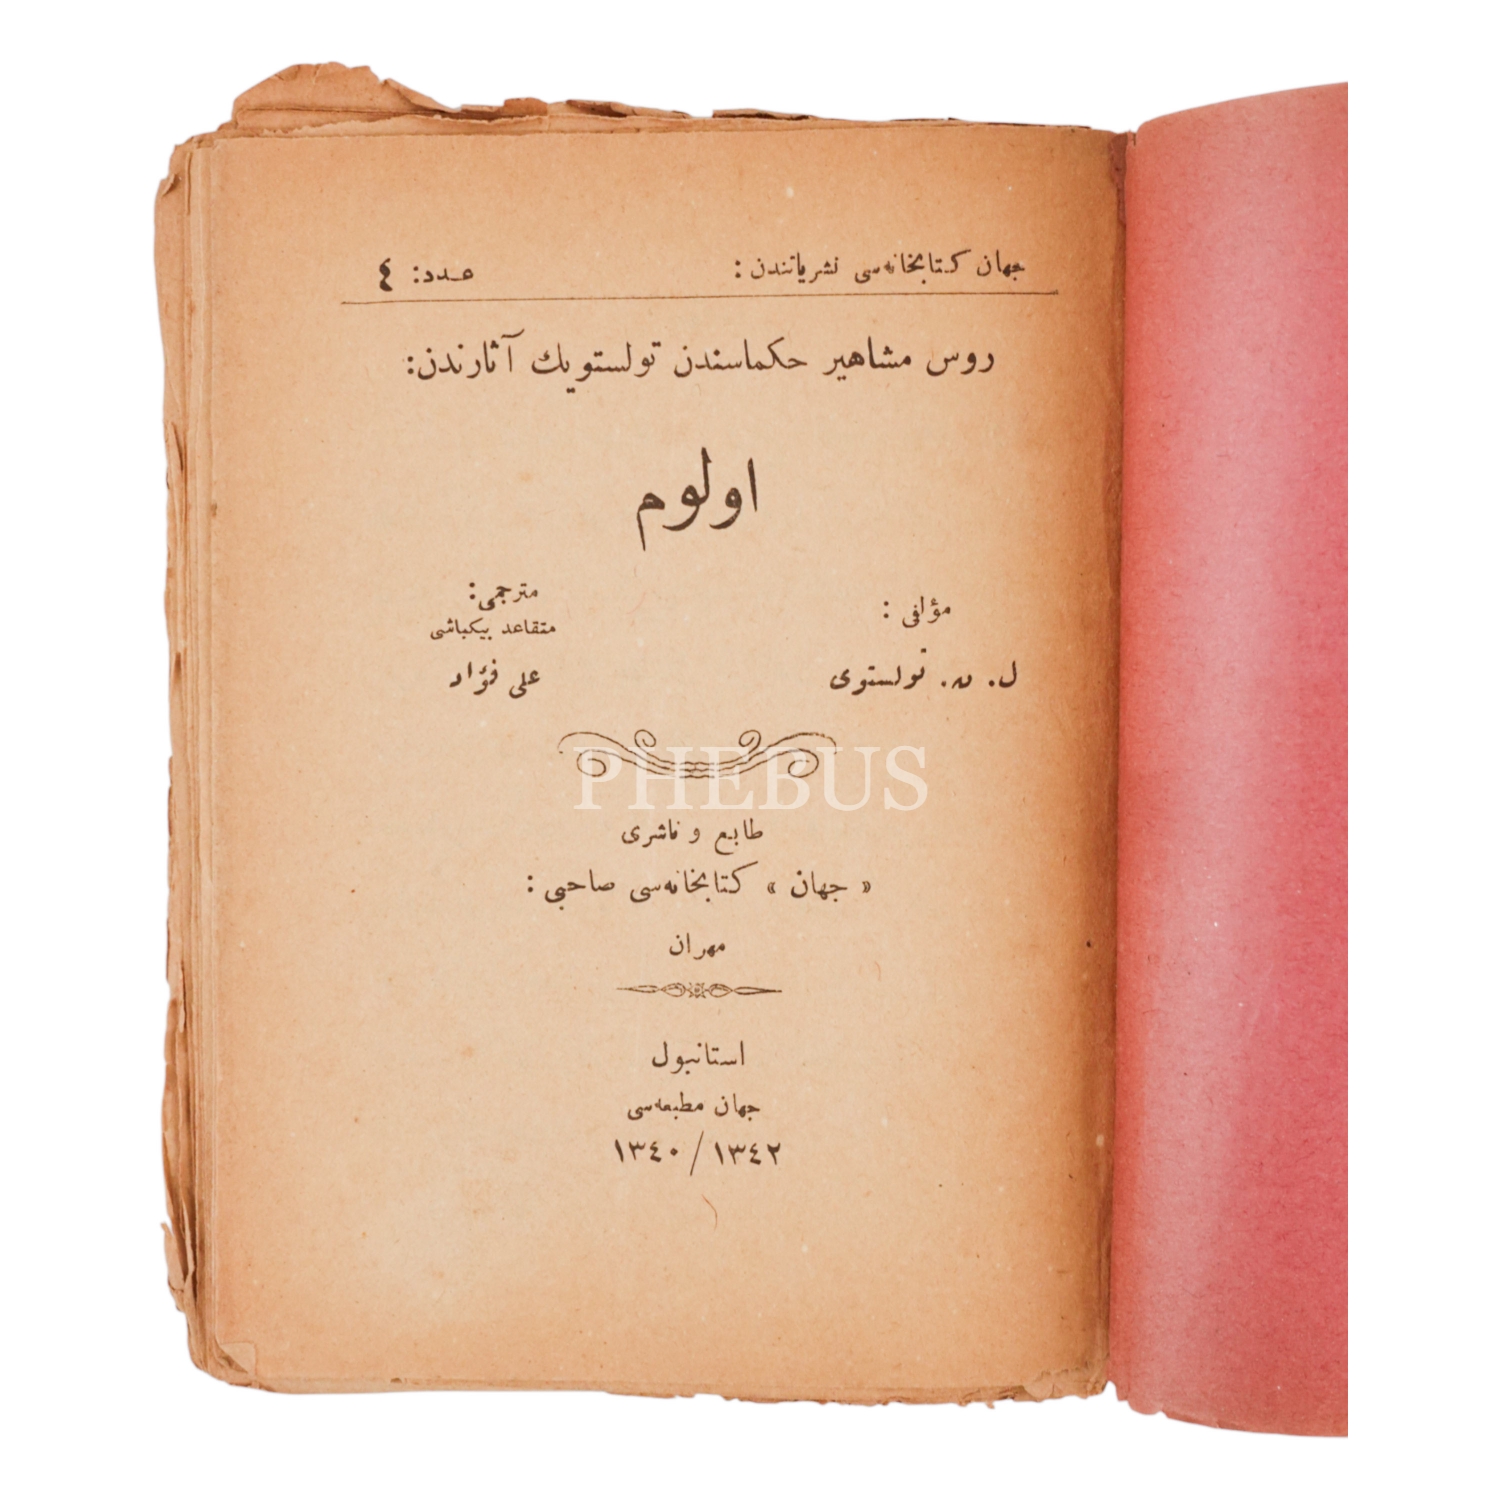 جهان كتابخانه‌سی نشریاتندن :
عدد: ٤
روس مشاهیر حكماسندن تولستویك آثارندن:
اولوم
مؤلفی :
ل. ن. تولستوی
مترجمی:
متقاعد بیكباشی
علی فؤاد
PHEBUS
طابع و ناشری
« جهان » كتابخانه‌سی صاحبی :
مهران
استانبول
جهان مطبعه‌سی
١٣٤٠ / ١٣٤٢